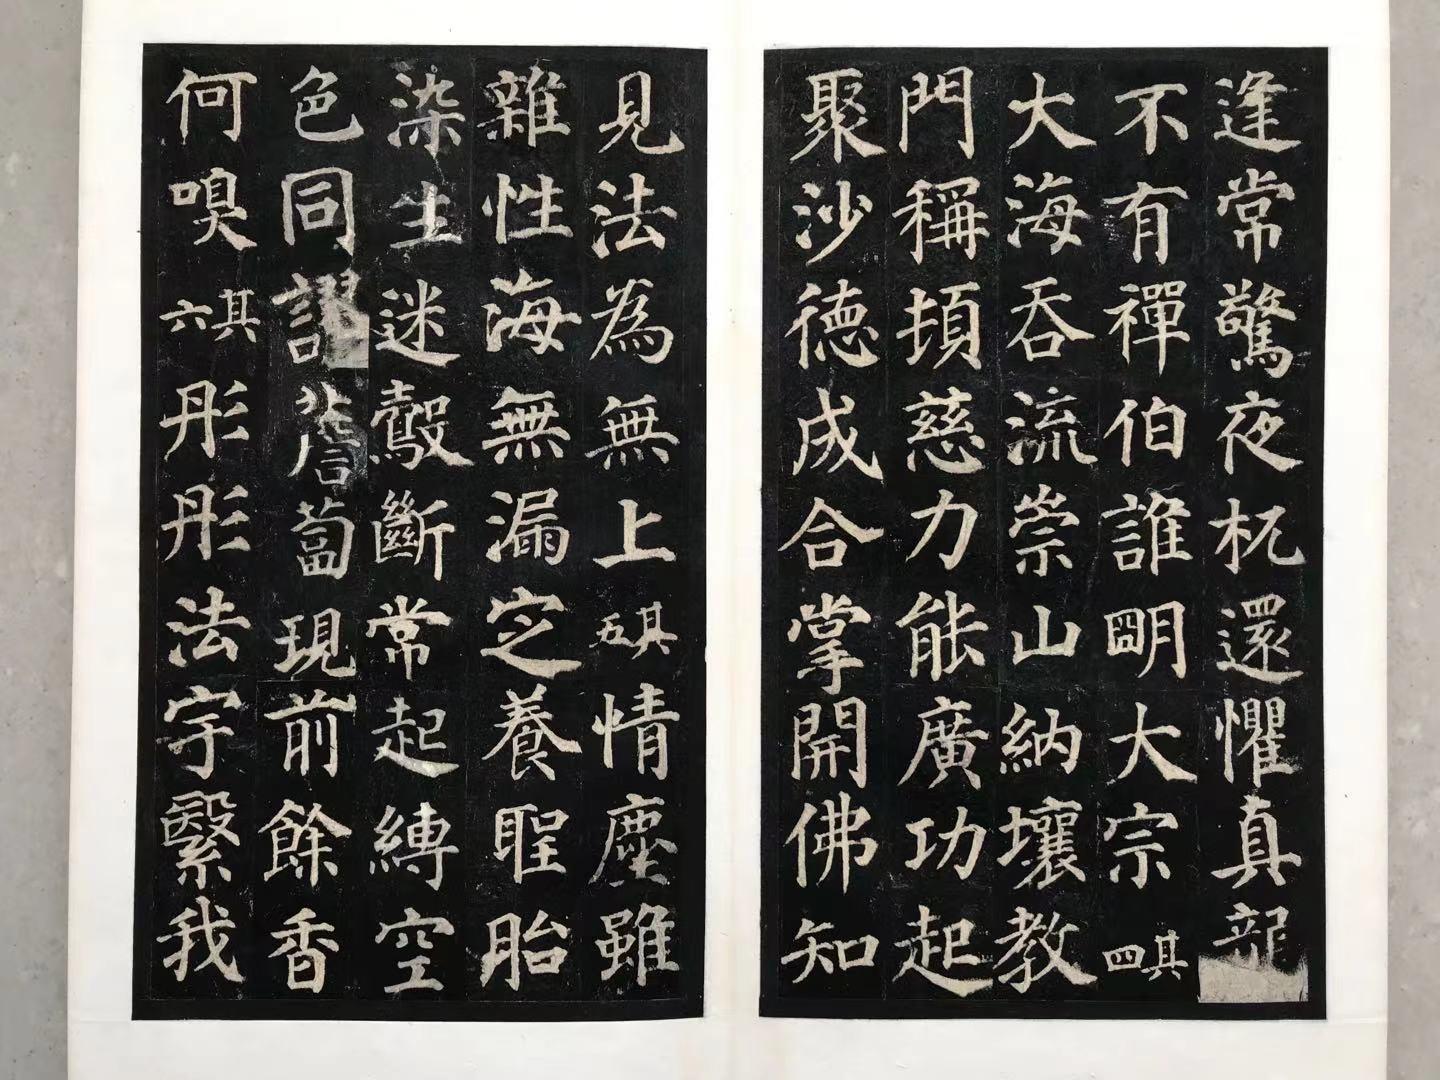 逢常驚夜杌還懼真龍
不有禪伯誰朙大宗其四
大海吞流崇山納壤教
門稱頓慈力能廣功起
聚沙德成合掌開佛知
見法為無上其五情塵雖
雜性海無漏定養聖胎
染生迷鷇斷常起縛空
色同謬薝蔔現前餘香
何嗅其六彤彤法宇繄我